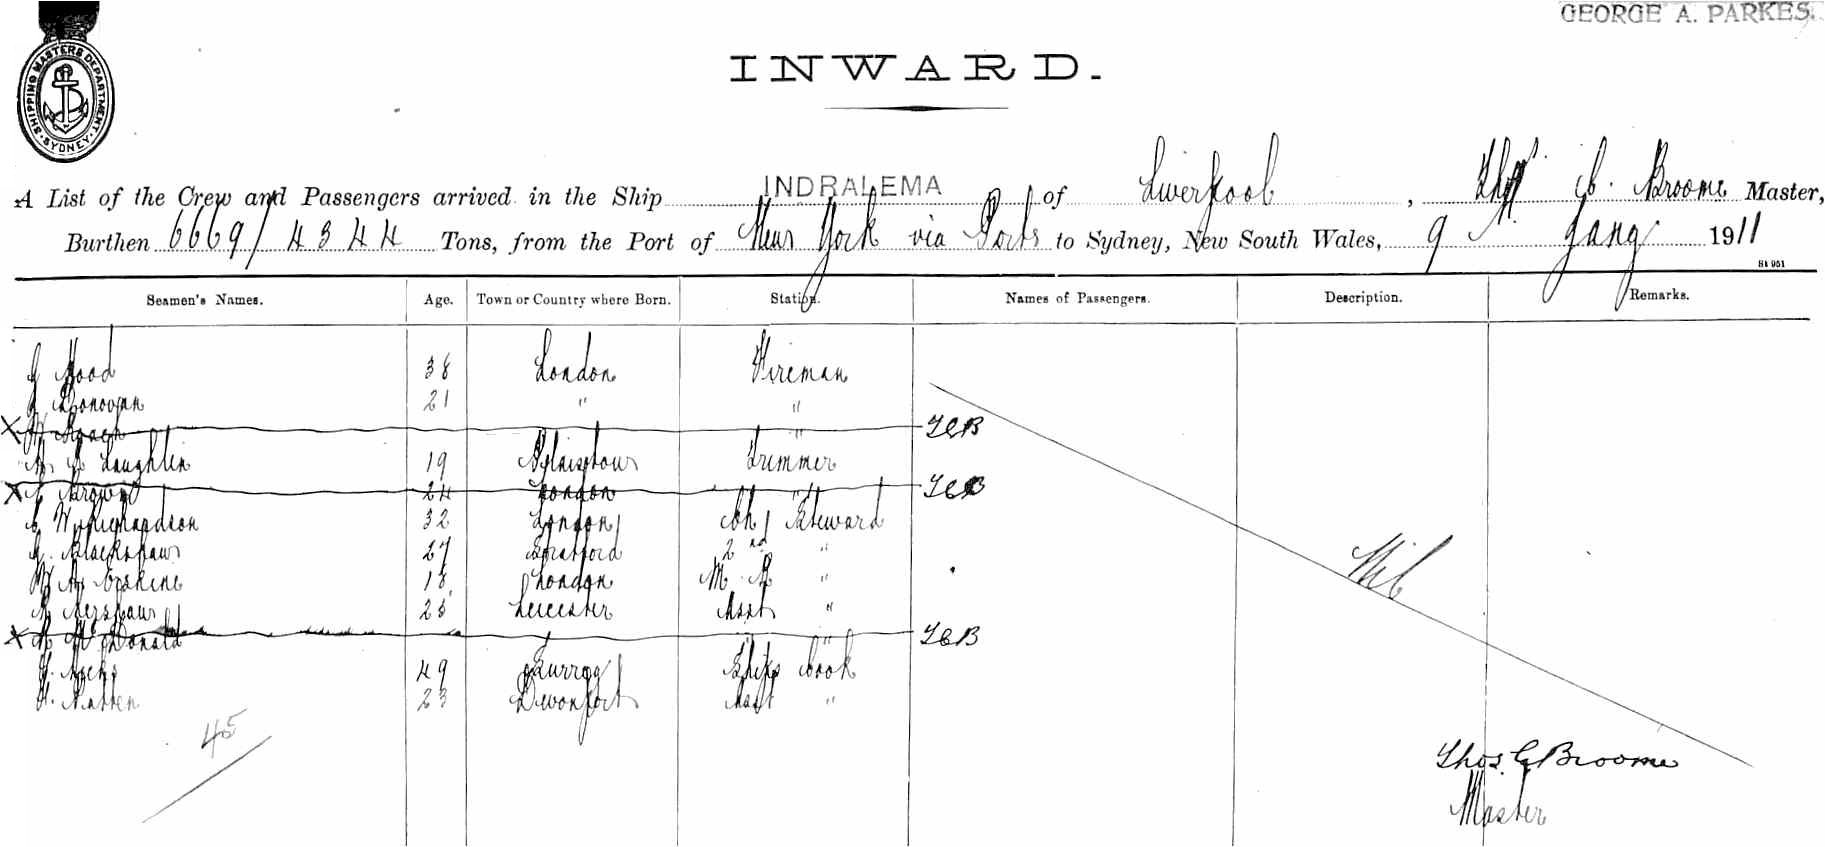 GEORGE A. PARKES.
SHIPPING MASTERS DEPARTMENT. SYDNEY
INWARD.
A List of the Crew and Passengers arrived in the Ship INDRALEMA of Liverpool, Thos. C. Broome Master,
Burthen 6669/4344 Tons, from the Port of New York via Ports to Sydney, New South Wales, 9 Jany 1911
Seamen's Names. Age. Town or Country where Born. Station. Names of Passengers. Description. Remarks.
38 London Fireman
Donovan 21 " "
X Roach " TCB
McLaughlin 19 Plaistow Trimmer
X Brown 24 London " TCB
Richardson 32 London Ch Steward
Blackshaw 27 Stratford 2nd "
Erskine 18 London M R "
Kershaw 25 Leicester Asst "
X McDonald " TCB
49 Surrey Ships Cook
23 Devonport Asst "
Nil
45
Thos. C Broome
Master